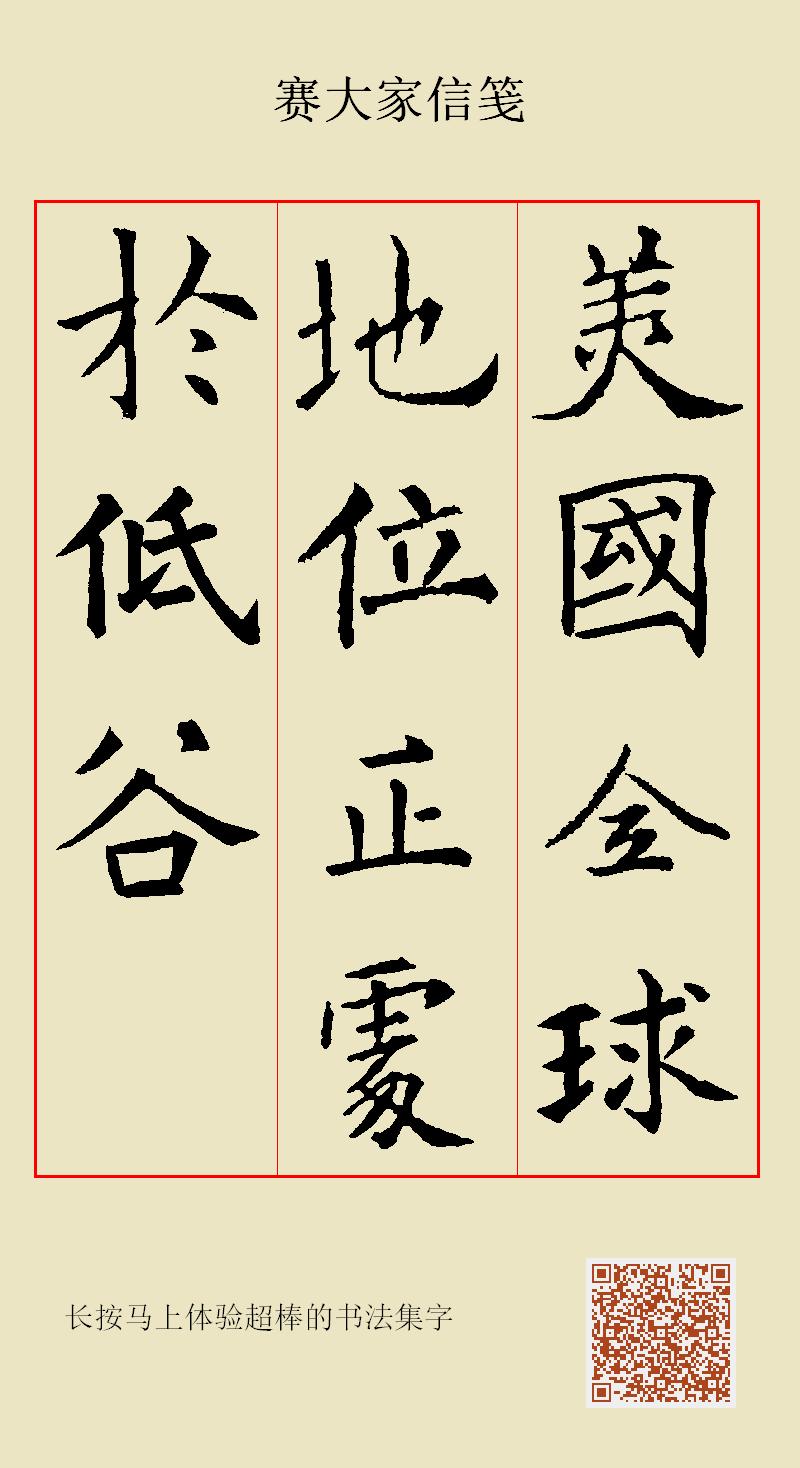 赛大家信笺
美國全球
地位正處
於低谷
长按马上体验超棒的书法集字